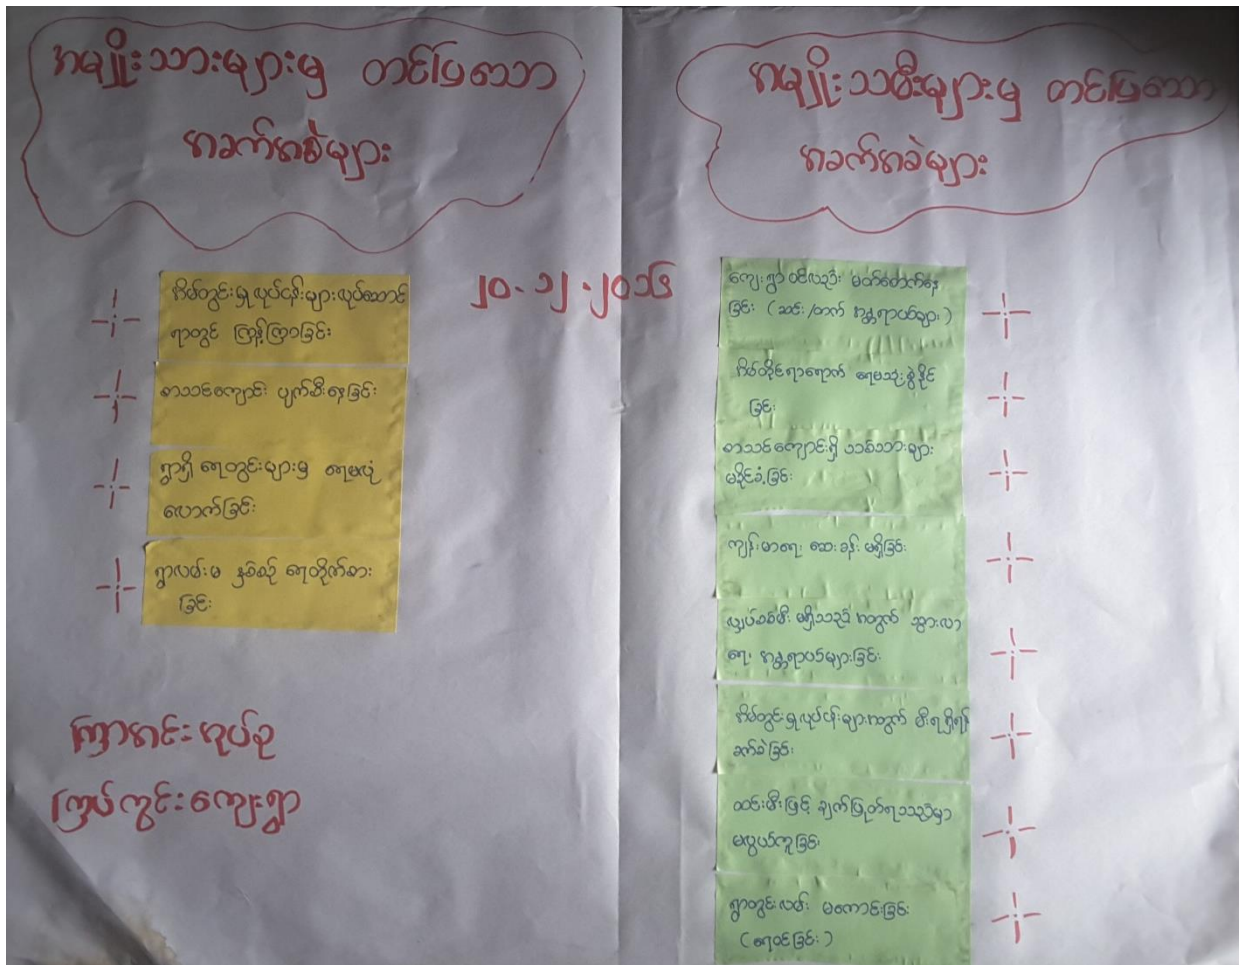 အမျိုးသားများမှ တင်ပြသော
အခက်အခဲများ
အိမ်တွင်းမှုလုပ်ငန်းများလုပ်ဆောင်
ရာတွင် ကြန့်ကြာခြင်း
စာသင်ကျောင်း ပျက်စီးနေခြင်း
ရွာရှိ ရေတွင်းများမှ ရေမလုံ
လောက်ခြင်း
ရွာလမ်းမ နှစ်စဉ် ရေတိုက်စား
ခြင်း
ကြာအင်းအုပ်စု
ကြပ်ကွင်းကျေးရွာ
၂၀.၁၂.၂၀၁၆
အမျိုးသမီးများမှ တင်ပြသော
အခက်အခဲများ
ကျေးရွာ ဝင်လည် မတ်စောက်နေ
ခြင်း (ဆင်း/တက် အန္တရာယ်များ)
အိမ်တိုင်ရာရောက် ရေမသုံးစွဲနိုင်
ခြင်း
စာသင်ကျောင်းရှိ သစ်သားများ
မခိုင်ခံ့ခြင်း
ကျန်းမာရေး ဆေးခန်း မရှိခြင်း
လျှပ်စစ်မီး မရှိသည့် အတွက် သွားလာ
ရေး အန္တရာယ်များခြင်း
အိမ်တွင်းမှုလုပ်ငန်းများအတွက် မီးရရှိရန်
ခက်ခဲခြင်း
ထင်းမီးဖြင့် ချက်ပြုတ်ရသည်မှာ
မလွယ်ကူခြင်း
ရွာတွင်းလမ်း မကောင်းခြင်း
(ရေဝင်ခြင်း)